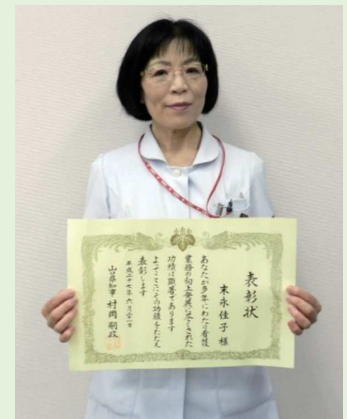 表彰状
末永佳子 様
あなたが多年にわたり看護
業務の向上発展に尽くされた
功績は顕著であります
よってここにその功績をたたえ
表彰します
平成二十七年六月二十一日
山口県知事 村岡嗣政